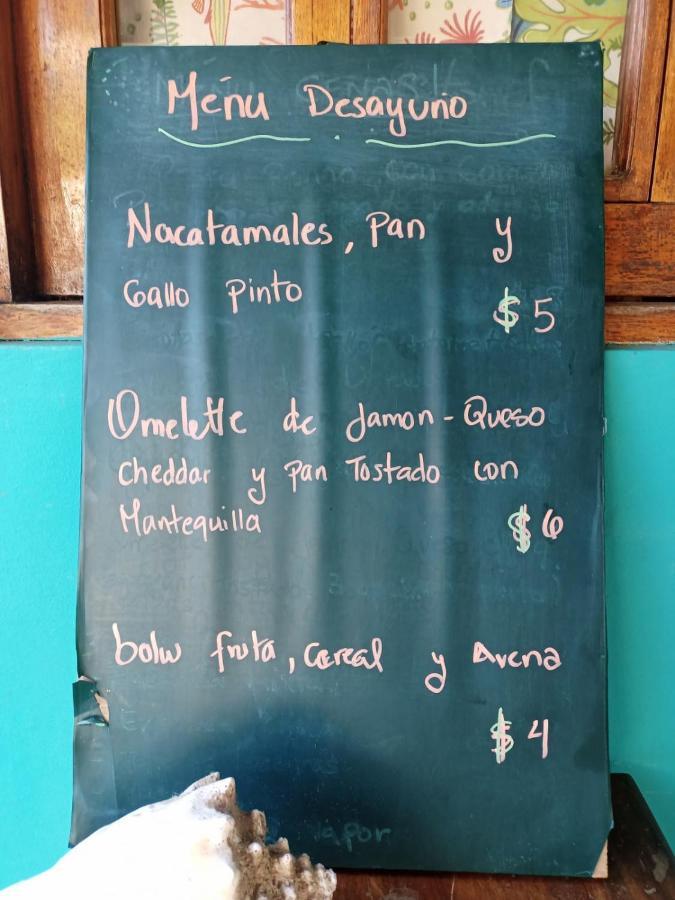 Menú Desayuno
Nacatamales, Pan y
Gallo Pinto $5
Omelette de Jamon-Queso
Cheddar y Pan Tostado con
Mantequilla $6
bolw fruta, cereal y Avena
$4